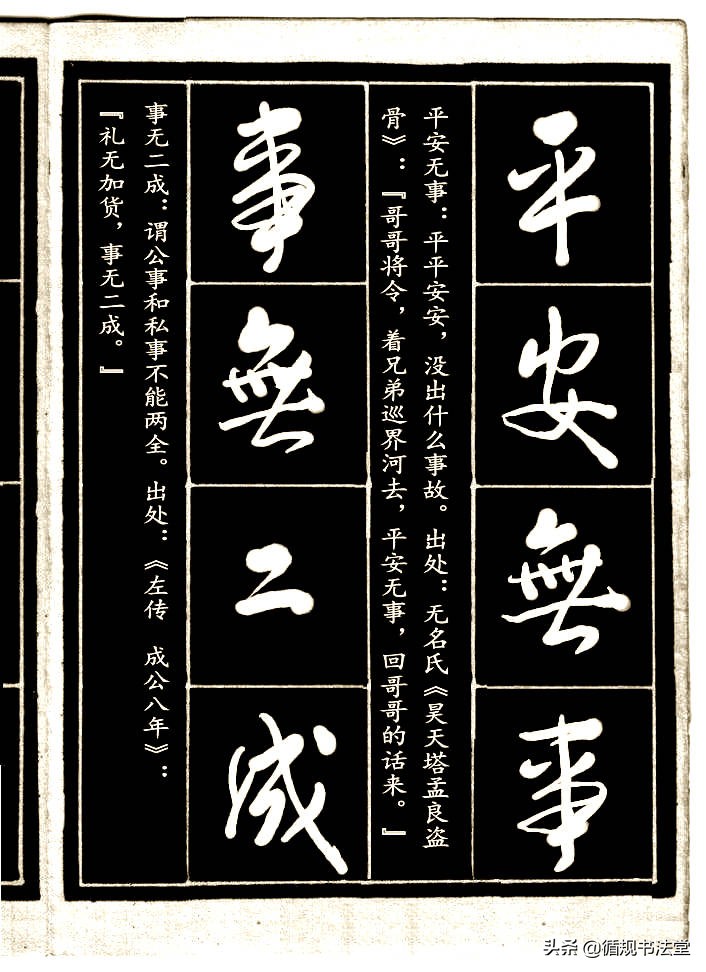 平安無事
平安无事：平平安安，没出什么事故。出处：无名氏《昊天塔孟良盗
骨》：『哥哥将令，着兄弟巡界河去，平安无事，回哥哥的话来。』
事無二成
事无二成：谓公事和私事不能两全。出处：《左传　成公八年》：
『礼无加货，事无二成。』
头条 @循规书法堂